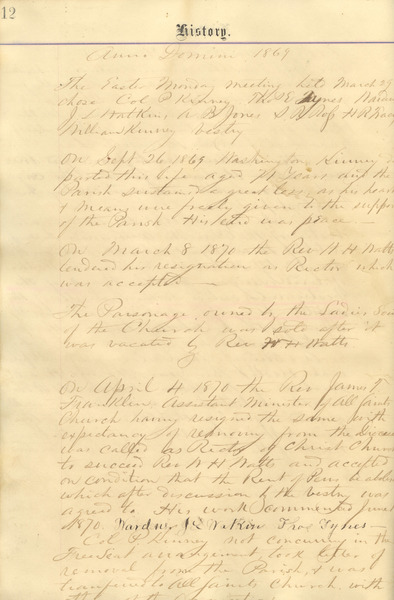 12
History.
Anno Domini 1869
The Easter Monday meeting held March 29
chose Col P Kinney Thos E
J L Watkins A B Jones S R
William Kinney Vestry
On Sept 26 1869 Washington Kinney
parted this life aged years and the
Parish sustained a great loss, as his
& means were freely given to the support
of the Parish His end was peace —
On March 8 1870 the Rev W H Watts
tendered his resignation as Rector which
was accepted —
The Parsonage owned by the Ladies Soc
of the Church was sold after it
was vacated by Rev W H Watts
On April 4 1870 the Rev James
Franklin, Assistant Minister of All Saints
Church having resigned the same with
expectancy of removing from the Diocese
was called as Rector of Christ Church
to succeed Rev W H Watts and accepted
on condition that the Rent of Pews be
which after discussion by the vestry was
agreed to His work commenced June
1870. Thos
Col P Kinney not concurring in the
Free Seat arrangement took letter of
removal from the Parish, & was
transferred to All Saints Church, with